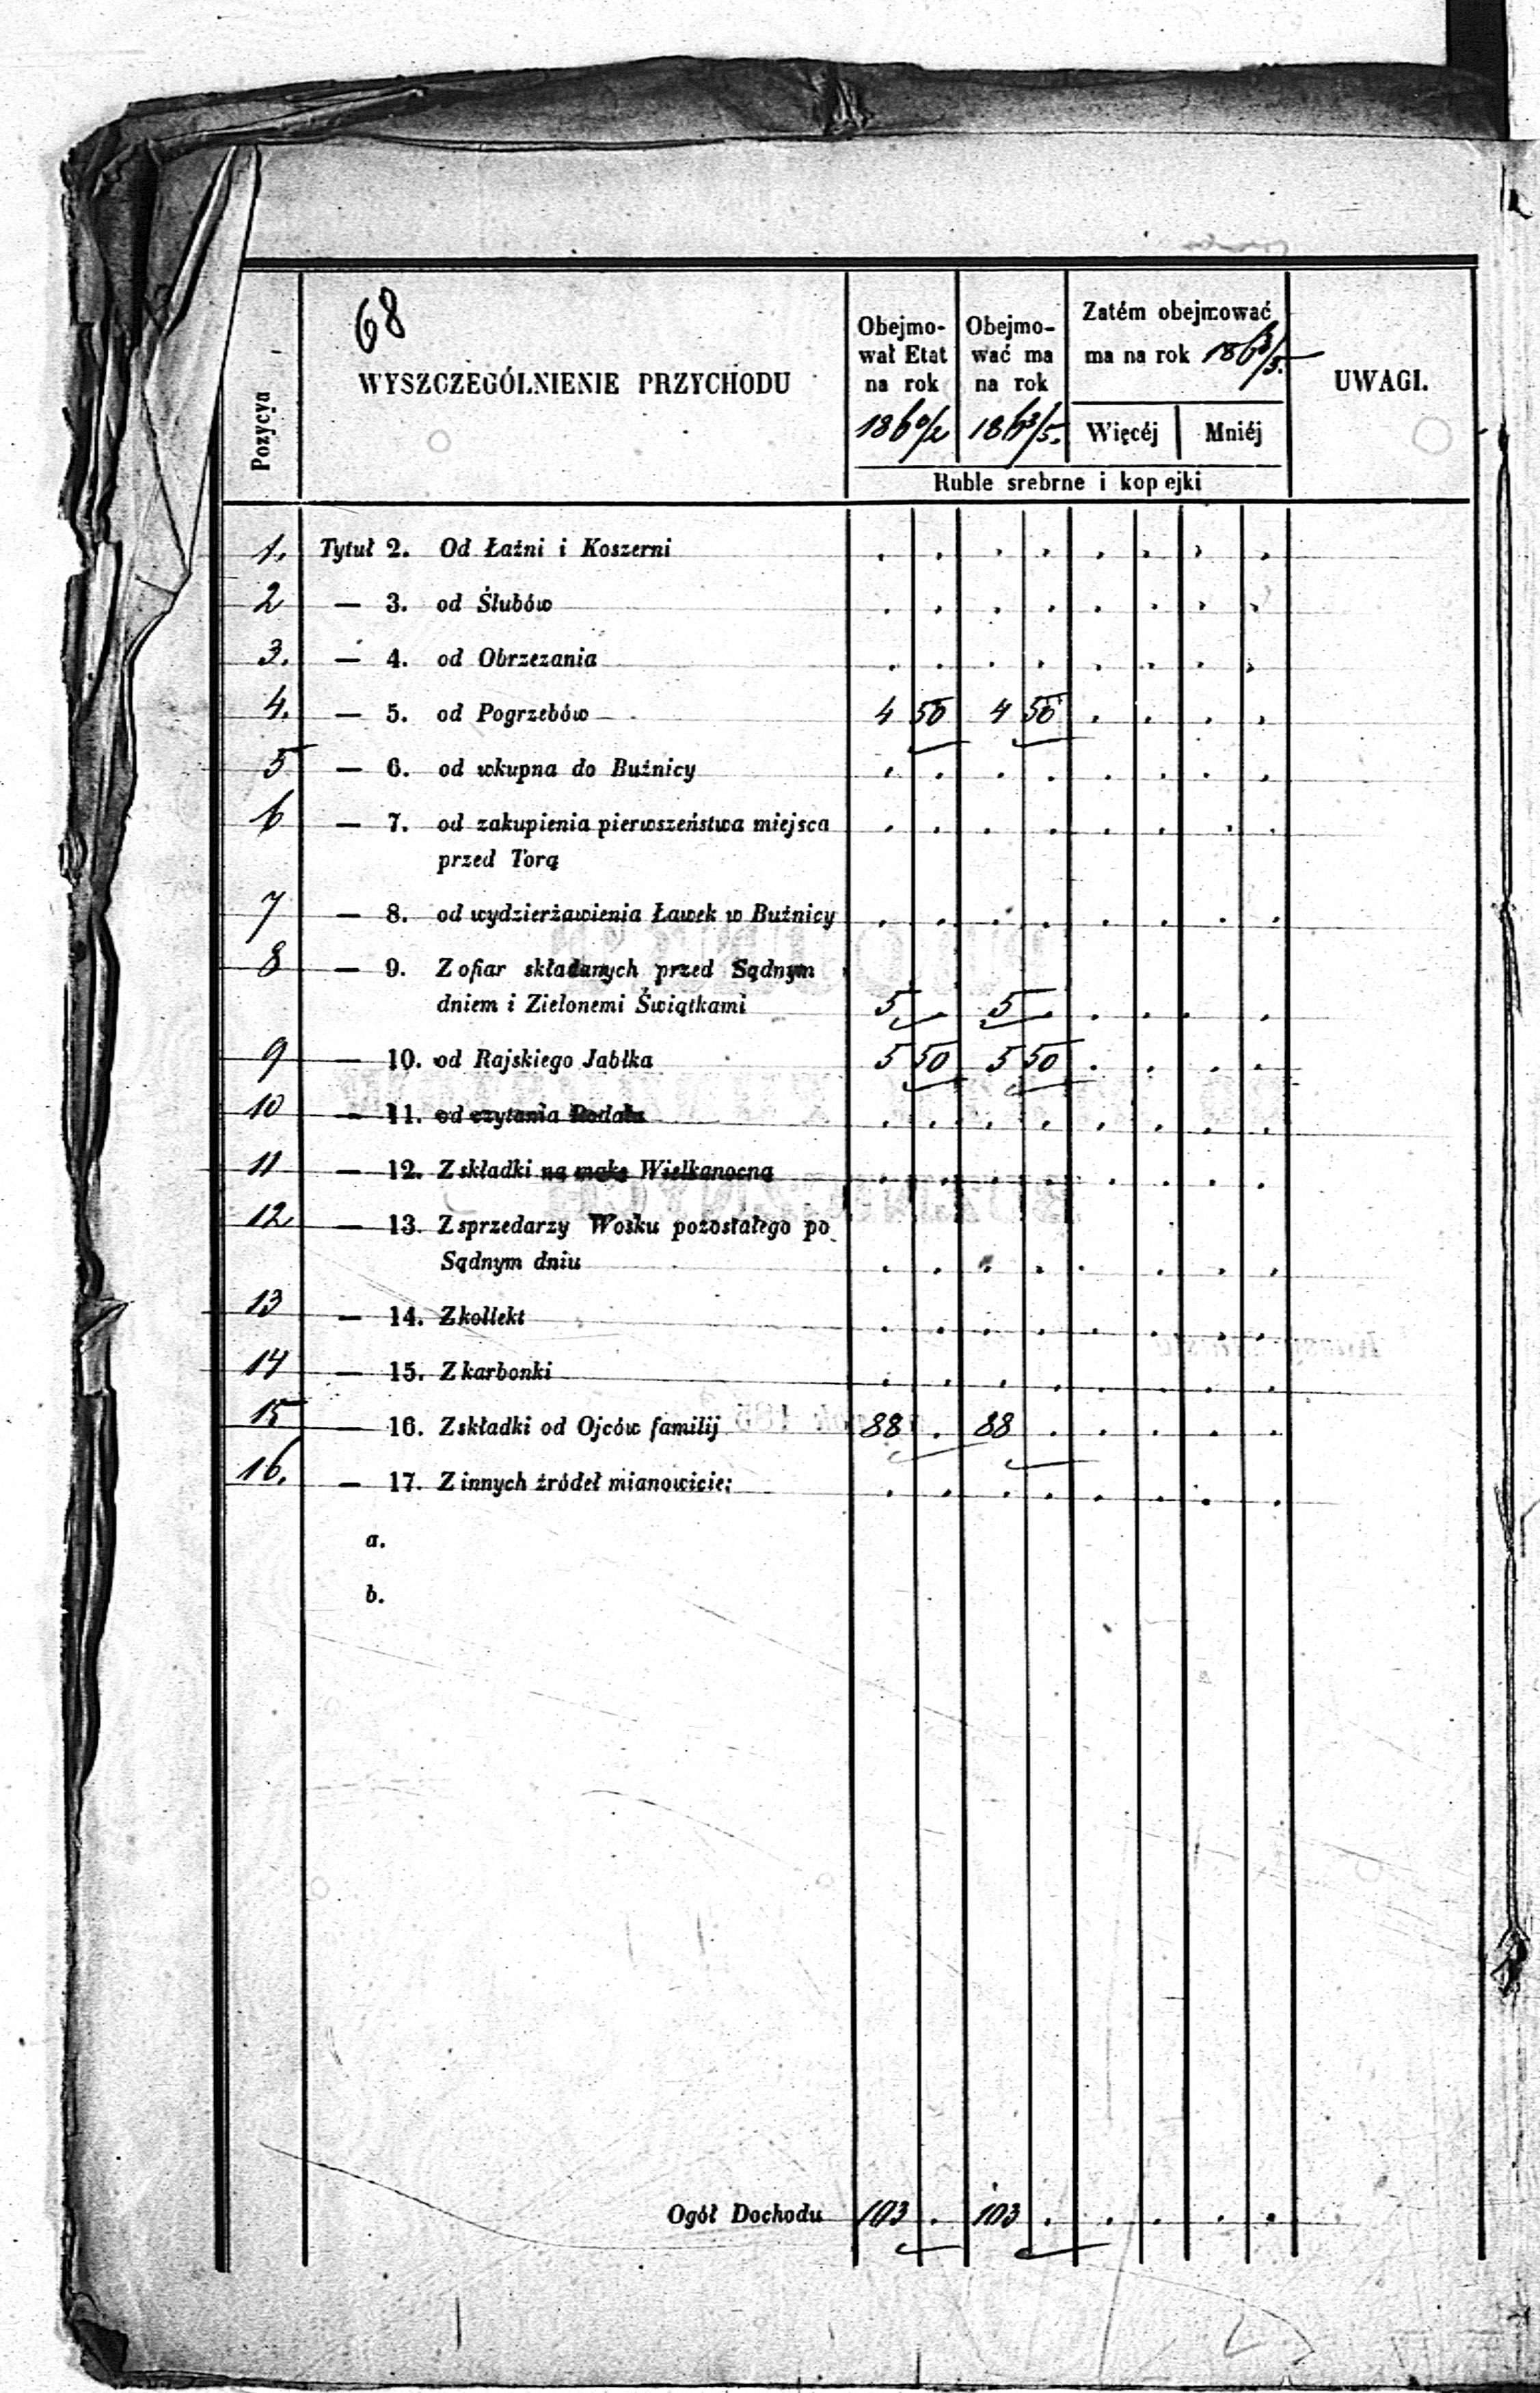 68
Pozycya
WYSZCZEGÓLNIENIE PRZYCHODU
Obejmo-
wał Etat
na rok
1860/2
Obejmo-
wać ma
na rok
1863/5.
Zatém obejmować
ma na rok 1863/5.
Więcéj Mniéj
UWAGI.
Ruble srebrne i kopejki
1. Tytuł 2. Od Łaźni i Koszerni . . . . . . . .
2 — 3. od Ślubów . . . . . . . .
3. — 4. od Obrzezania . . . . . . . .
4. — 5. od Pogrzebów 4 50 4 50 . . . .
5 — 6. od wkupna do Buźnicy . . . . . . . .
6 — 7. od zakupienia pierwszeństwa miejsca . . . . . . . .
przed Torą
7 — 8. od wydzierżawienia Ławek w Buźnicy . . . . . . . .
8 — 9. Z ofiar składanych przed Sądnym
dniem i Zielonemi Świątkami 5 . 5 . . . . .
9 — 10. od Rajskiego Jabłka 5 50 5 50 . . . .
10 — 11. od czytania Rodału . . . . . . . .
11 — 12. Z składki na mąkę Wielkanocną . . . . . . . .
12 — 13. Z sprzedarzy Wosku pozostałego po
Sądnym dniu . . . . . . . .
13 — 14. Z kollekt . . . . . . . .
14 — 15. Z karbonki . . . . . . . .
15 — 16. Z składki od Ojców familij 88 . 88 . . . . .
16. — 17. Z innych źródeł mianowicie: . . . . . . . .
a.
b.
Ogół Dochodu 103 . 103 . . . . .